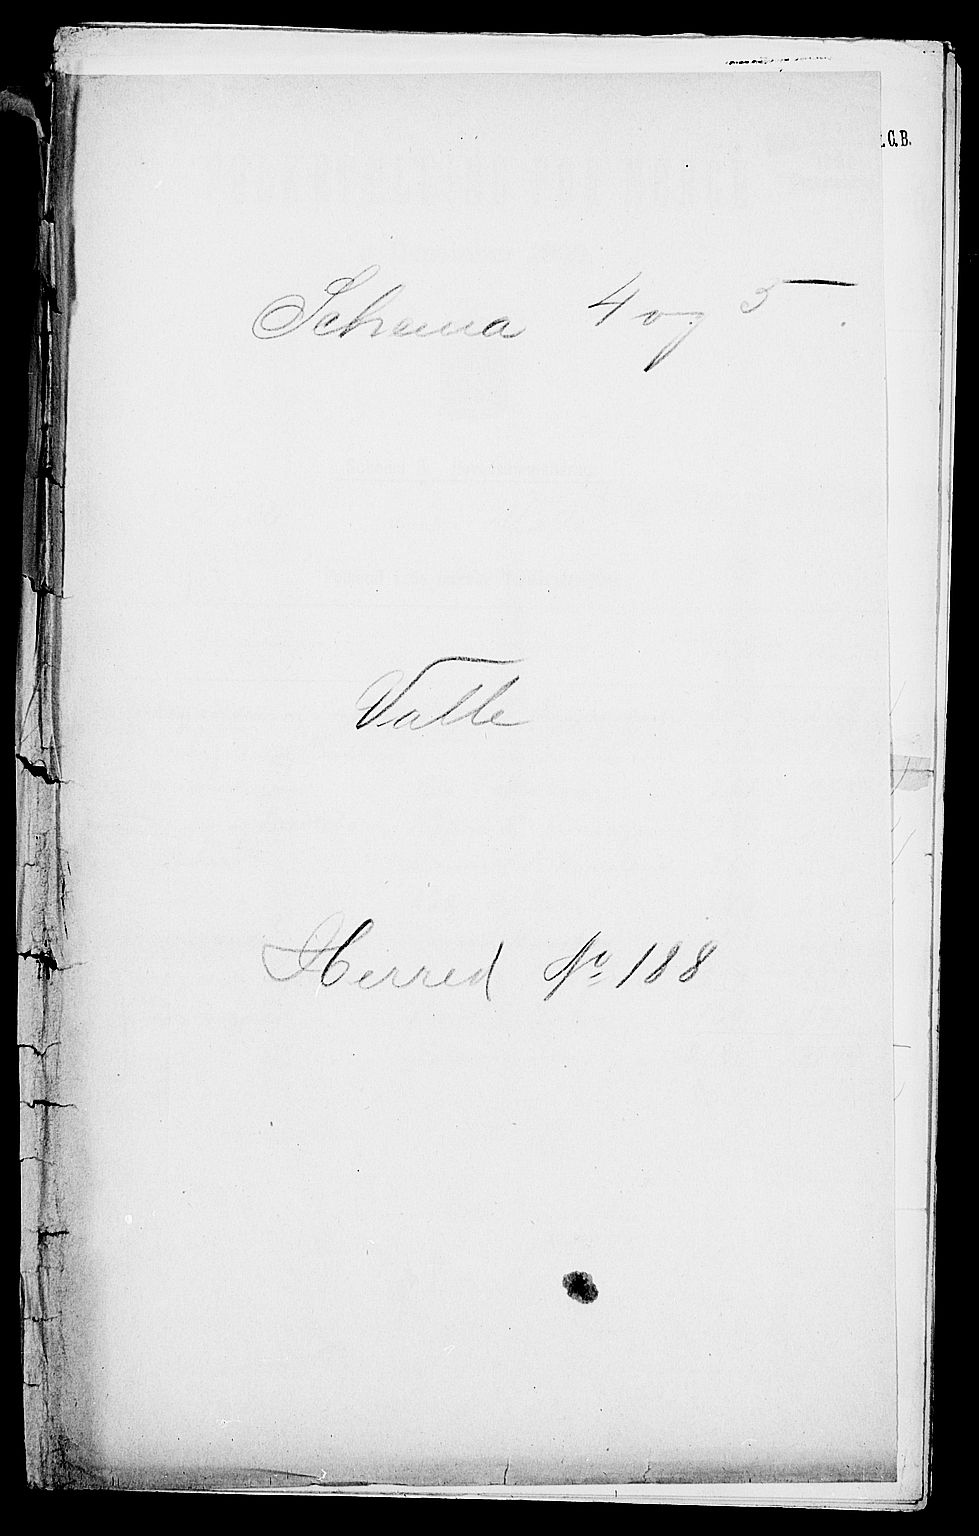 . G. B.
Schema 4 og 5.
Valle
Herred No 188